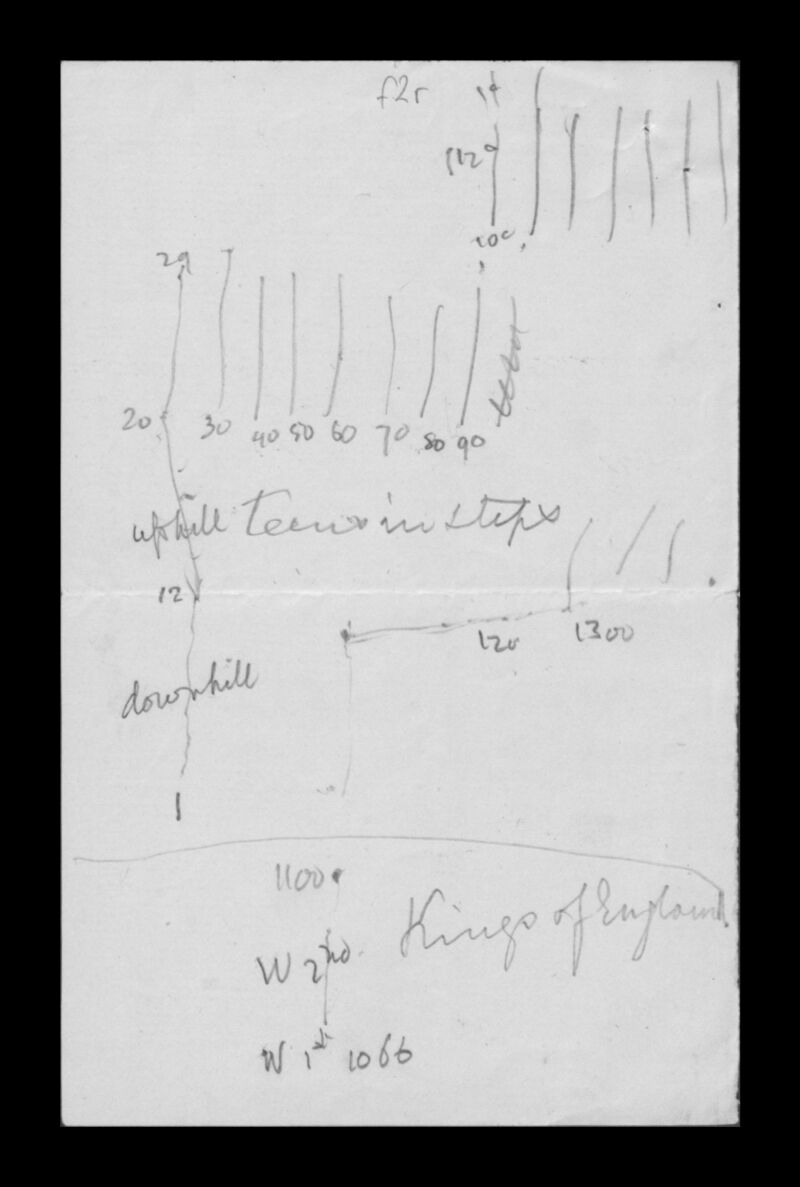 f2r
112
100
29
20 30 40 50 60 70 80 90
uphill Teens in steps
12
120 1300
downhill
1
1100
Kings of England
W 2nd
W 1st 1066